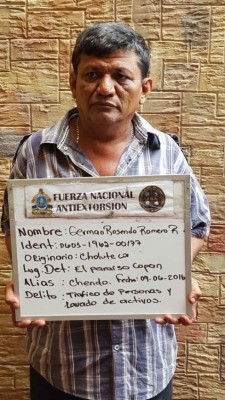 FUERZA NACIONAL
ANTIEXTORSION
Nombre: German Rosendo Romero R.
Ident: 0603-1962-00177
Originario: Choluteca
Lug. Det: El paraiso Copan
Alias: Chendo. Fecha: 09-06-2016
Delito: Trafico de Personas y
Lavado de activos.